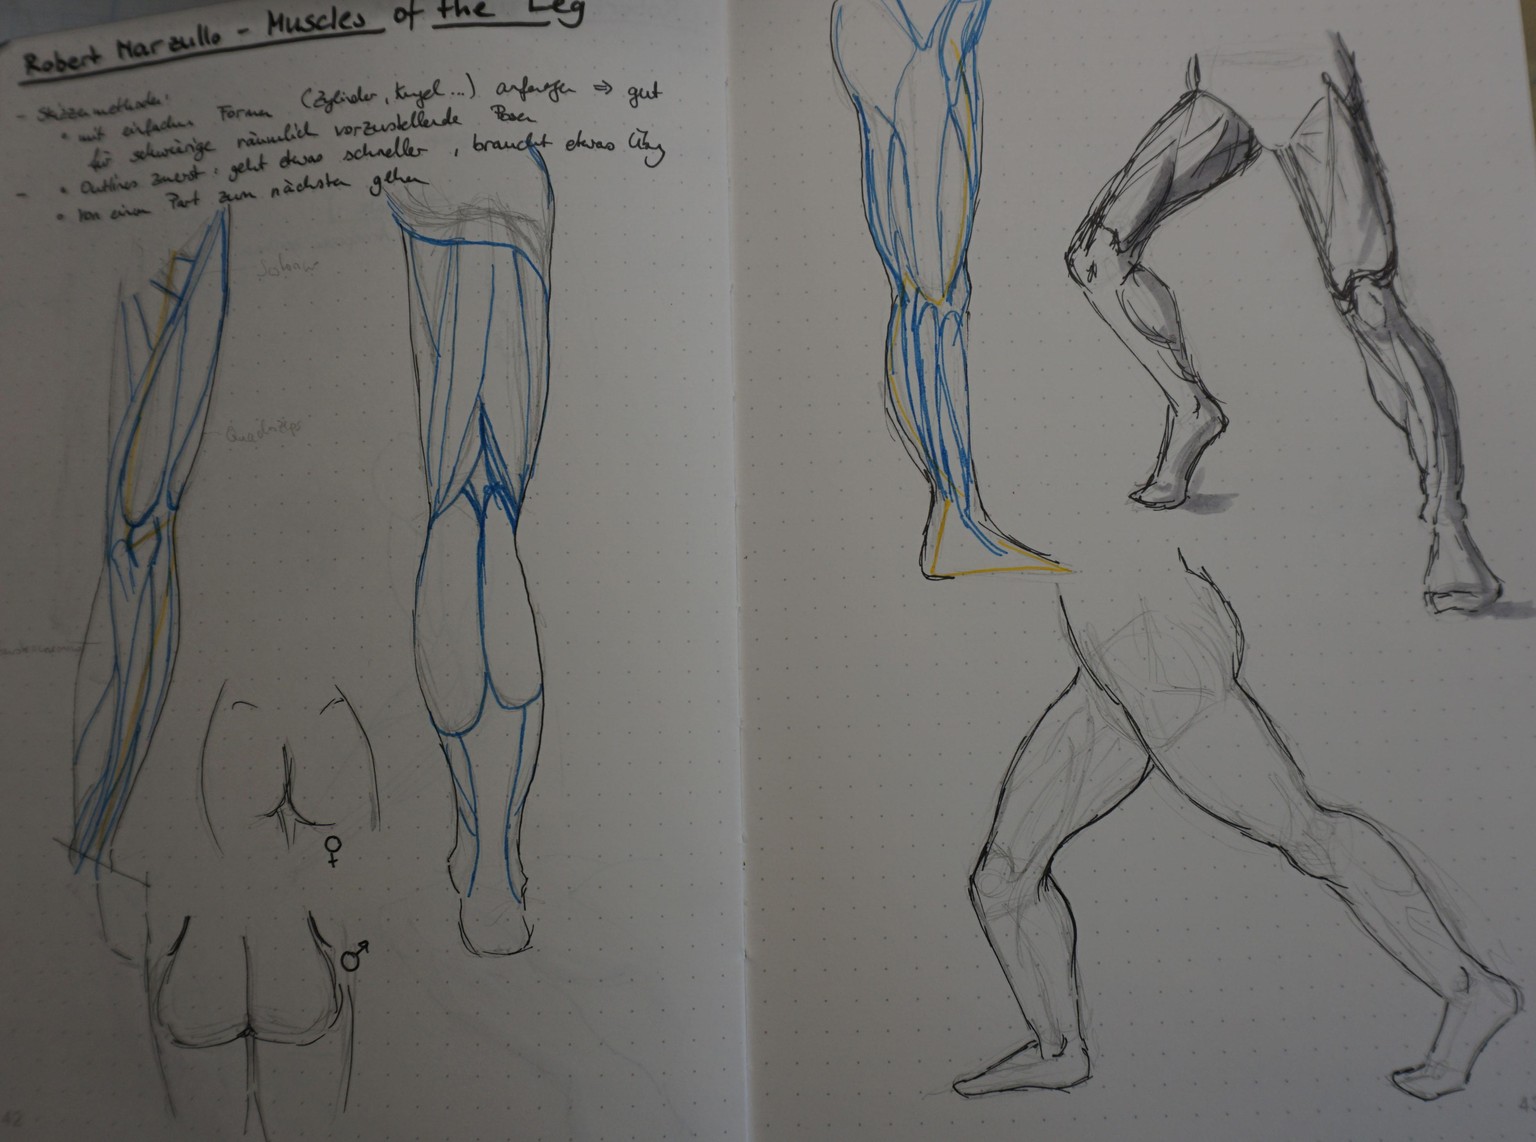 Robert Marzullo - Muscles of the Leg
- Skizzenmethoden:
• mit einfachen Formen (Zylinder, Kugel...) anfangen ⇒ gut
für schwierige räumlich vorzustellende Posen
- • Outlines zuerst: geht etwas schneller, braucht etwas Übung
• von einem Part zum nächsten gehen
Quadrizeps
♀
♂
42